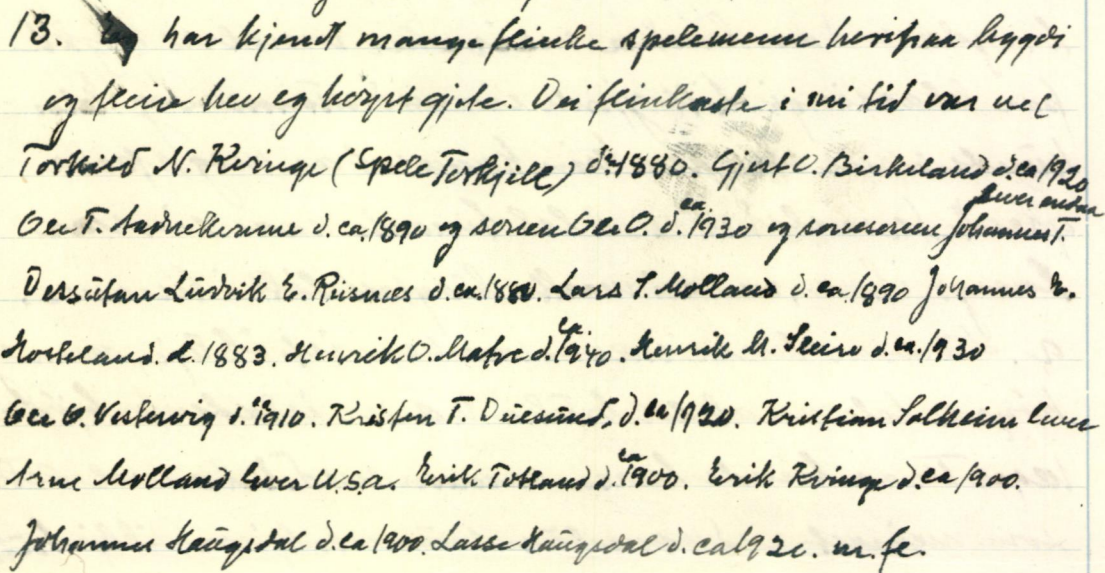 13. Eg har kjendt mange flinke spelemenn herifraa bygdi
og fleire hev eg høyrt gjete. Dei flinkaste i mi tid var vel
Torkild N. Kvinge (Spele Torkjell) d. ca 1880. Gjert O. Birkeland d. ca 1920
lever endnu
Ole T. Andvikvaame d. ca. 1890 og sonen Ole O. d. ca. 1930 og sonesonen Johannes T.
Dessutan Ludvik E. Risnes d. ca. 1880. Lars S. Molland d. ca. 1890 Johannes E.
Hosteland. d. 1883. Henrik O. Matre d. ca. 1940. Henrik M. Sleire d. ca. 1930
Ole O. Vestervig d. ca 1910. Kristen T. Duesund, d. ca 1920. Kristian Solheim lever
Arne Molland lever U.S.A. Erik Totland d. ca 1900. Erik Kvinge d. ca 1900.
Johannes Haugsdal d. ca 1900. Lasse Haugsdal d. ca 1920. m. fl.